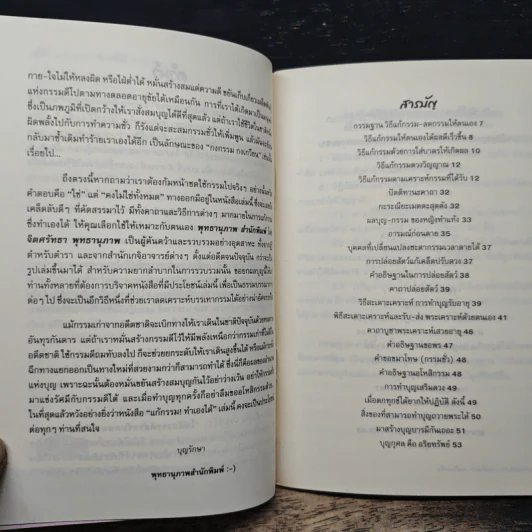 กาย-ใจไม่ให้หลงผิด หรือใฝ่ต่ำได้ หมั่นสร้างสมแต่ความดี ขยันเก็บเกี่ยว
แห่งกรรมดีไปตามทางตลอดอายุขัยได้เหมือนกัน การที่เราได้เกิดมาเป็น
ซึ่งเป็นภพภูมิที่เปิดกว้างให้เราสั่งสมบุญได้ดีที่สุดแล้ว แต่ถ้าเราใช้ชีวิต
ผิดพลั้งไปกับการทำความชั่ว ก็รังแต่จะสะสมกรรมชั่วให้เพิ่มพูน แล้ว
กลับมาซ้ำเติมทำร้ายเราเองได้อีก เป็นลักษณะของ "กงกรรม กงเกวียน"
เรื่อยไป...
ถึงตรงนี้หากถามว่าเราต้องก้มหน้าชดใช้กรรมไปจริงๆ อย่างนั้น
คำตอบคือ "ใช่" แต่ "คงไม่ใช่ทั้งหมด" ทางออกมีอยู่ในหนังสือเล่มนี้ ซึ่ง
เคล็ดลับดีๆ ที่คัดสรรมาไว้ มีทั้งคาถาและวิธีการต่างๆ มากมายในการ
ซึ่งทำเองได้ ให้คุณเลือกใช้ให้เหมาะกับตนเอง พุทธานุภาพ สำนักพิมพ์ โดย
จิตศรัทธา พุทธานุภาพ เป็นผู้ค้นคว้าและรวบรวมอย่างอุตสาหะ ทั้งจาก
ตำรับตำรา และจากสำนักเกจิอาจารย์ต่างๆ ตั้งแต่อดีตจนปัจจุบัน กว่าจะ
รูปเล่มขึ้นมาได้ สำหรับความยากลำบากในการรวบรวมนั้น ขอยกผลบุญนี้
ท่านทั้งหลายที่ต้องการบริจาคหนังสือที่มีประโยชน์เล่มนี้ เพื่อเป็นธรรม
ต่อๆ ไป ซึ่งจะเป็นอีกวิธีหนึ่งที่ช่วยเราลดเคราะห์บรรเทากรรมได้อย่างน่าอัศจรรย์
แม้กรรมเก่าจากอดีตชาติจะเบิกทางให้เราเดินในชาติปัจจุบันด้วย
อันทุรกันดาร แต่ถ้าเราหมั่นสร้างกรรมดีไว้ให้มีพลังเหนือกว่ากรรมเก่าที่
อดีตชาติ ใช้กรรมดีถมทับลงไป ก็จะช่วยยกระดับให้เราเดินสูงขึ้นได้ หรือ
ฉีกทางแยกออกเป็นทางใหม่ที่สวยงามกว่าก็สามารถทำได้ ซึ่งนี่ก็คือผลของ
แห่งบุญ เพราะฉะนั้นต้องหมั่นขยันสร้างสมบุญกันไว้อย่าว่างเว้น อย่าให้
มาแซงรัศมีกับกรรมดีได้ และเมื่อทำบุญทุกครั้งก็อย่าลืมขออโหสิกรรม
ในที่สุดแล้วหวังอย่างยิ่งว่าหนังสือ "แก้กรรม! ทำเองได้" เล่มนี้ คงจะเป็นประโยชน์
ต่อทุกๆ ท่านที่สนใจ
บุญรักษา
พุทธานุภาพสำนักพิมพ์ :-)
สารบัญ
กรรมฐาน วิธีแก้กรรม-ลดกรรมให้ตนเอง 7
วิธีแก้กรรมให้ตนเองได้ผลดีเร็วขึ้น 8
วิธีแก้กรรมด้วยการใส่บาตรให้เกิดผล 10
วิธีแก้กรรมดวงวิญญาณ 12
วิธีแก้กรรมตามเคราะห์กรรมที่ได้รับ 12
ปัดติทานะคาถา 26
กะระณียะเมตตะสุตตัง 26
ผลบุญ-กรรม ของหญิงทำแท้ง 33
อารมณ์ก่อนตาย 35
บุคคลที่เปลี่ยนแปลงชะตากรรมเวลาตายได้ 37
การปล่อยสัตว์แก้เคล็ดปรับดวง 37
คำอธิษฐานในการปล่อยสัตว์ 38
การปล่อยสัตว์ 39
วิธีสะเดาะเคราะห์ การทำบุญรับอายุ 39
พิธีสะเดาะเคราะห์และรับ-ส่ง พระเคราะห์ด้วยตนเอง 41
คาถาบูชาพระเคราะห์เสวยอายุ 46
คำอธิษฐานขอพร 46
คำขอขมาโทษ (กรรมชั่ว) 48
คำอธิษฐานอโหสิกรรม 48
การทำบุญเสริมดวง 49
เมื่อตกทุกข์ได้ยากให้ปฏิบัติ ดังนี้ 49
สิ่งของที่สามารถทำบุญถวายพระได้ 50
มาสร้างบุญบารมีกันเถอะ 51
บุญกุศล คือ อริยทรัพย์ 53